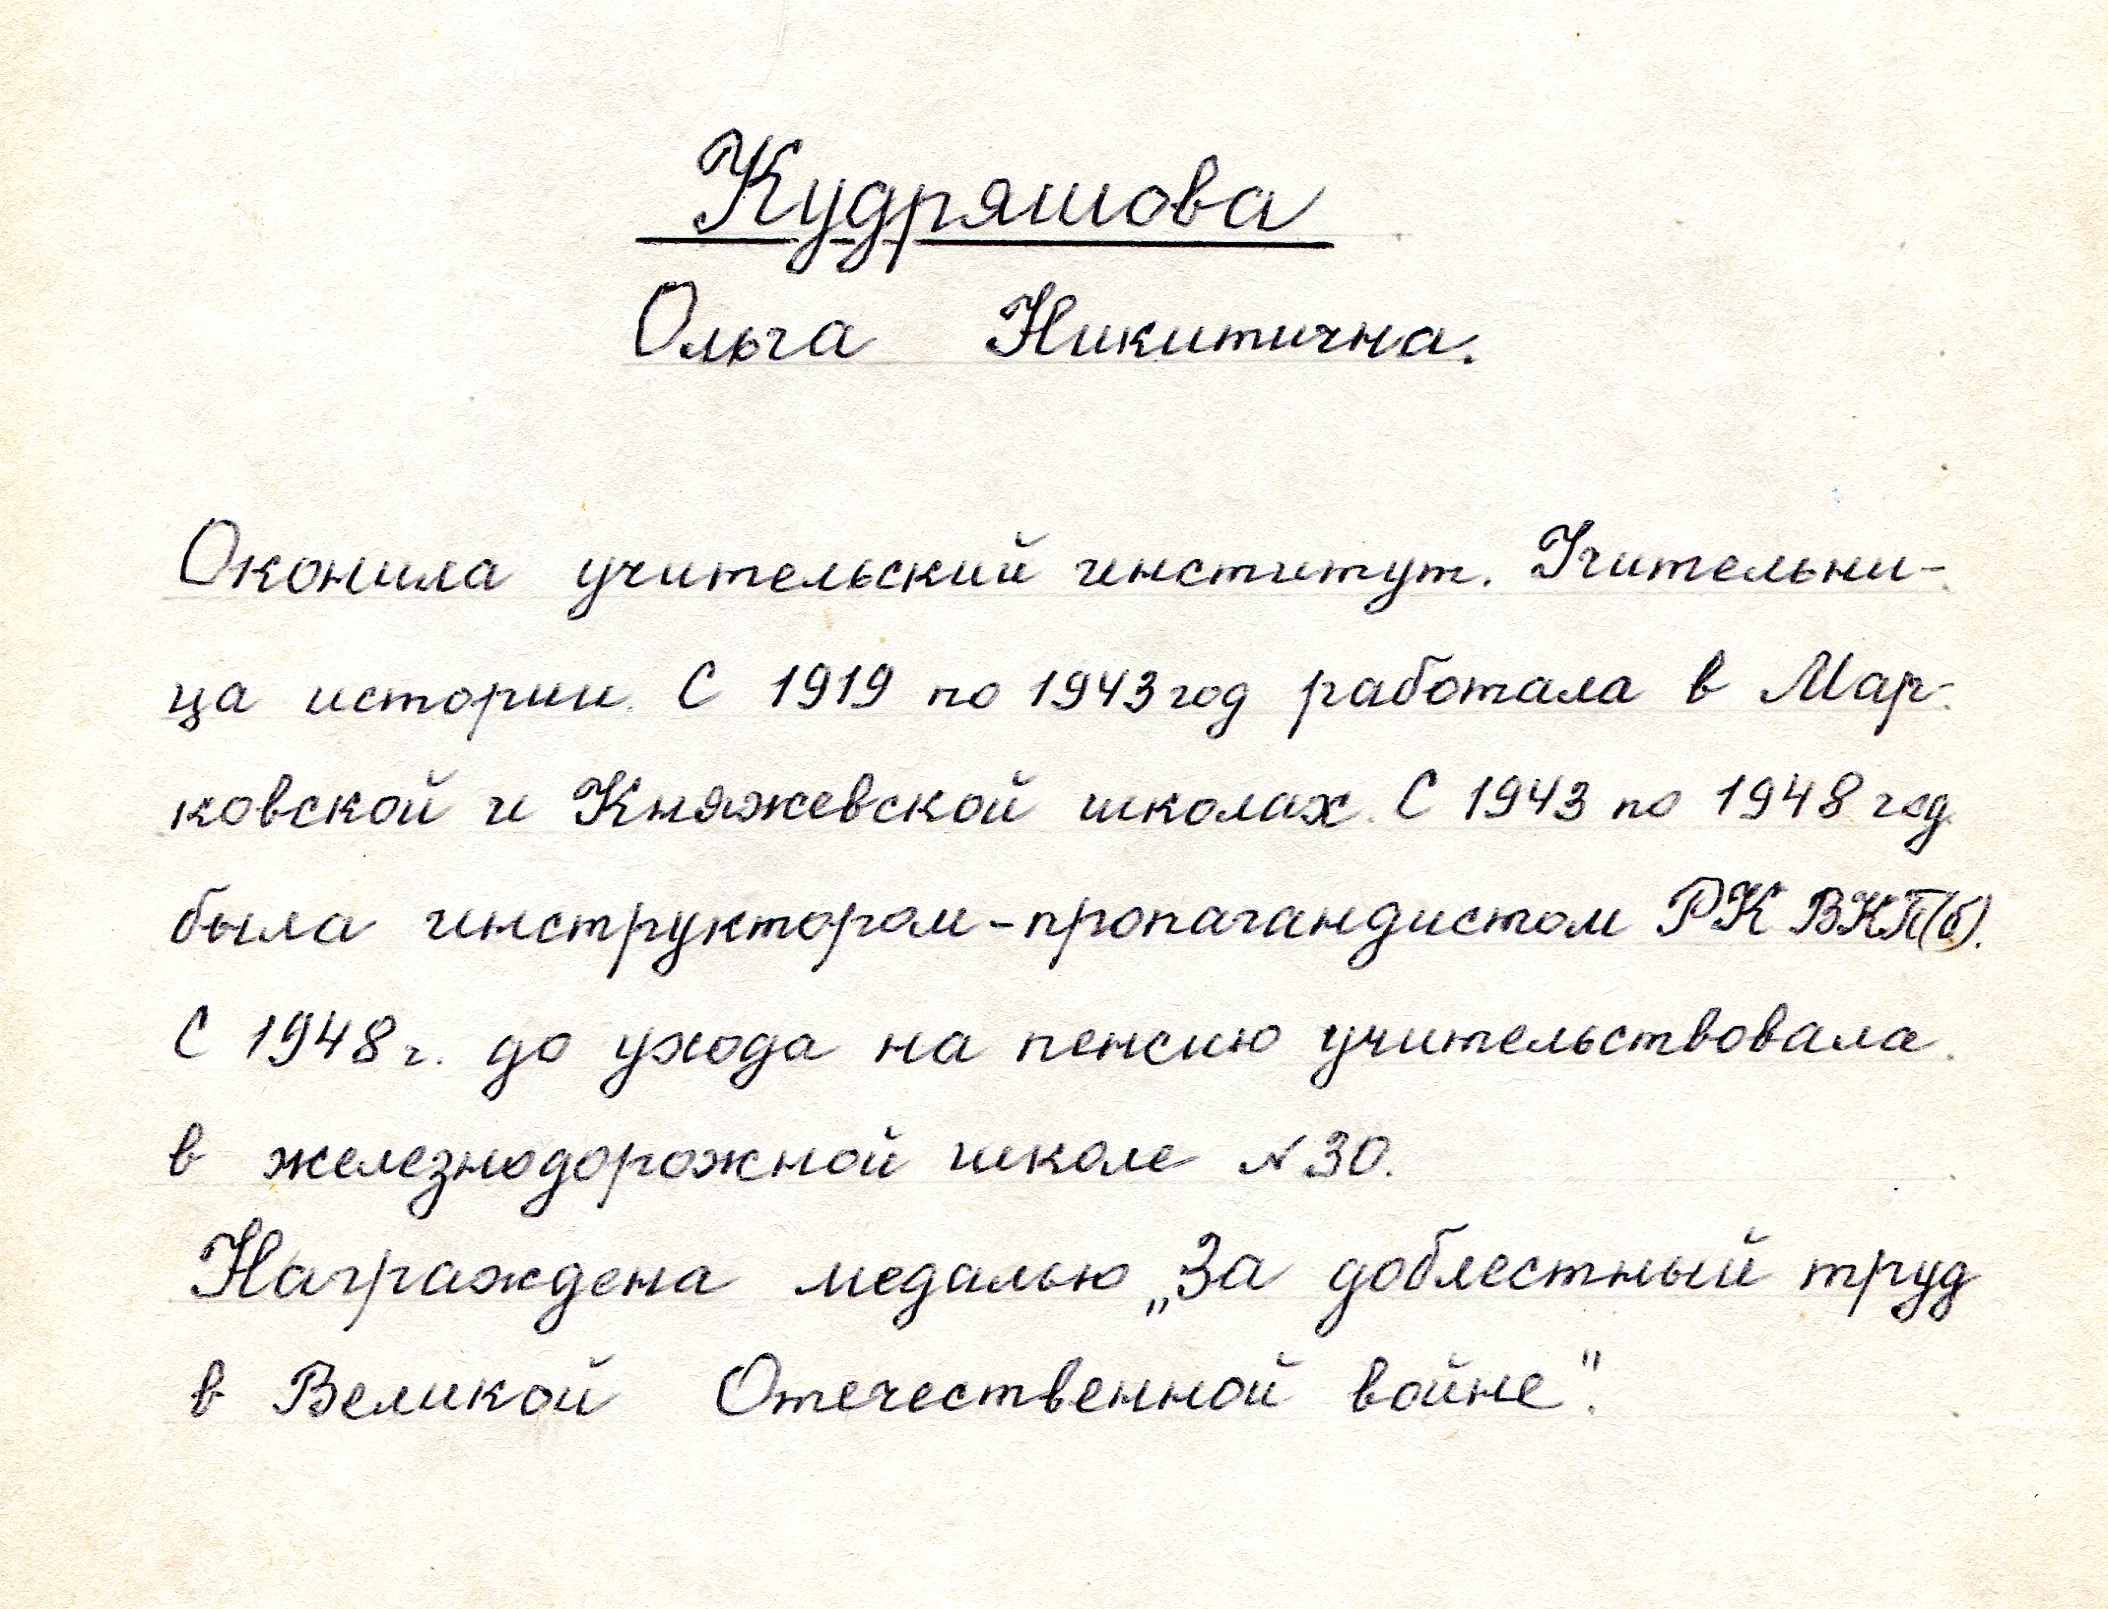 Кудряшова
Ольга Никитична.
Окончила учительский институт. Учительни-
ца истории. С 1919 по 1943 год работала в Мар-
ковской и Княжевской школах. С 1943 по 1948 год
была инструктором-пропагандистом РК ВКП(б).
С 1948 г. до ухода на пенсию учительствовала
в железнодорожной школе №30.
Награждена медалью „За доблестный труд
в Великой Отечественной войне".